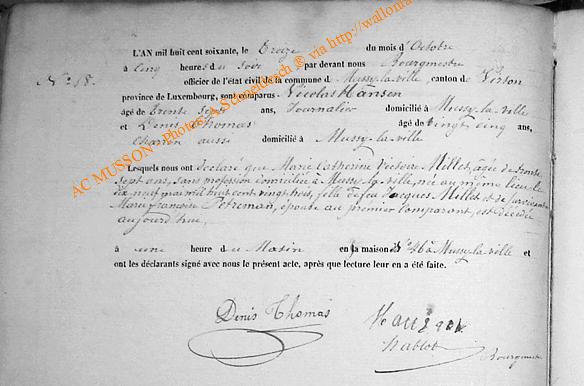 L'AN mil huit cent soixante, le Treize du mois d'Octobre
N° 18. à Cinq heures du Soir par devant nous Bourgmestre
officier de l'état civil de la commune de Mussy-la-ville, canton de Virton
province de Luxembourg, sont comparus Nicolas Hansen
âgé de Trente Sept ans, Journalier domicilié à Mussy-la-ville
et Denis Thomas âgé de vingt Cinq ans,
Charron aussi domicilié à Mussy-la-ville
Lesquels nous ont déclaré que Marie Catherine Victoire Millet, âgée de trente
Sept ans, sans profession domiciliée à Mussy-la-ville, née au même lieu le
dix neuf mai mil huit cent vingt trois, fille de feu Jacques Millet et de
Marie françoise Petreman, épouse au premier Comparant, est décédée
aujourd'hui
à une heure du Matin en la maison N° 46 à Mussy-la-ville et
ont les déclarants signé avec nous le présent acte, après que lecture leur en a été faite.
Denis Thomas
Bourgmestre
AC MUSSON - Photos A.Schneidesch ® via http://wallonia